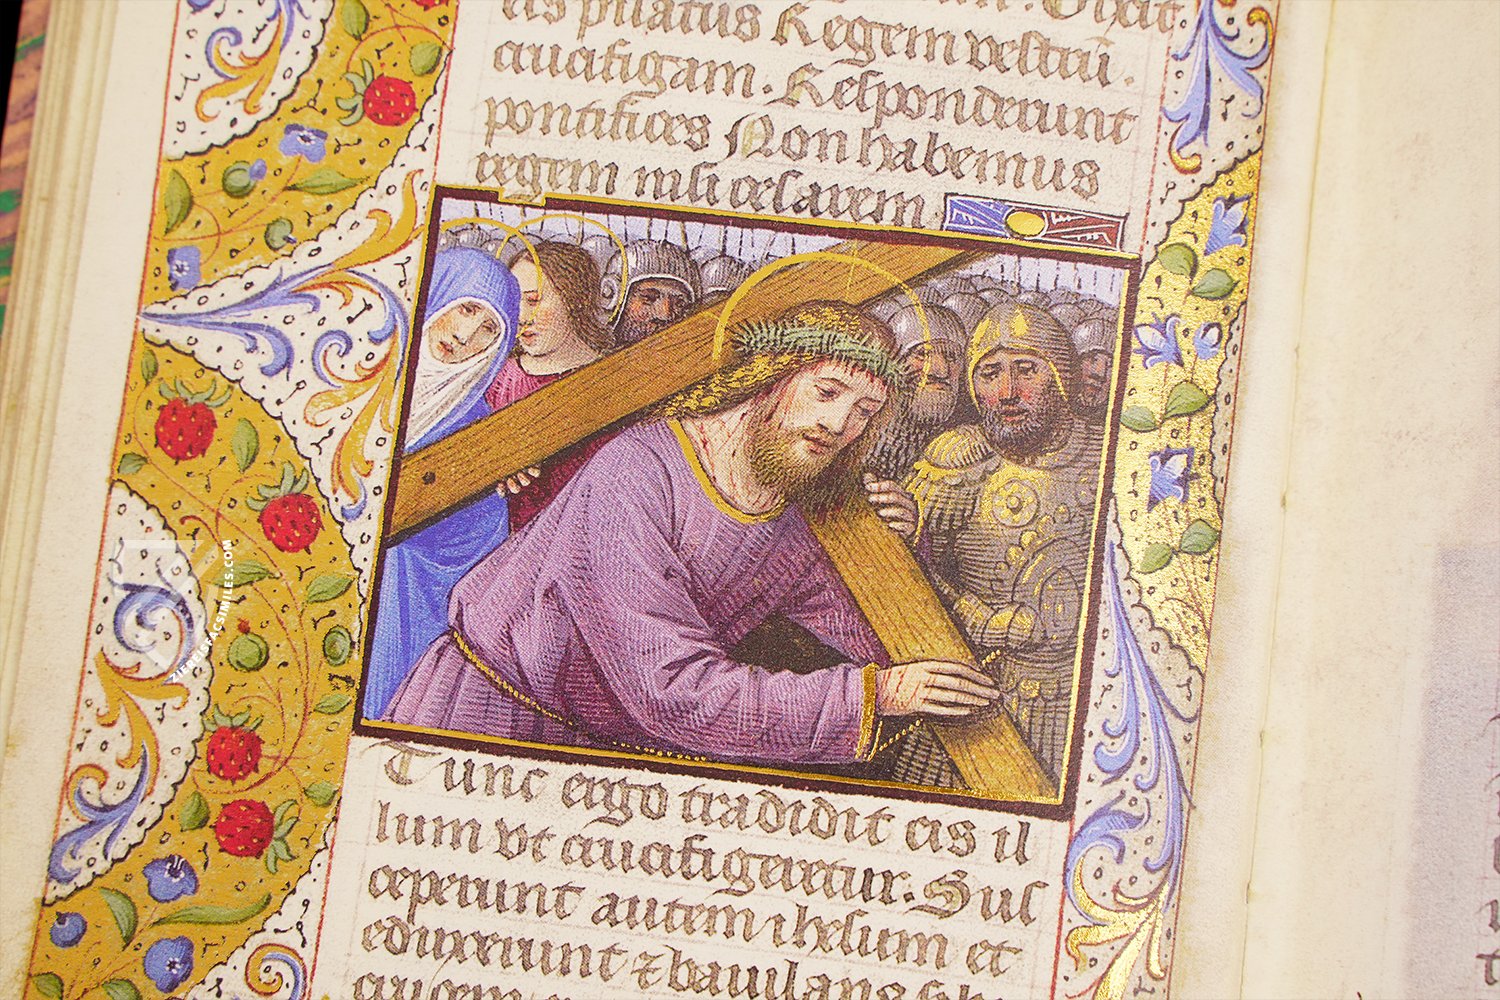 eis pilatus Regem vestrū.
crucifigam. Responderunt
pontifices Non habemus
regem nisi cesarem
Tunc ergo tradidit eis il
lum vt crucifigeretur. Sus
ceperunt autem ihesum et
eduxerunt ⁊ baiulans sibi
crucem
ZIEREISFACSIMILES.COM